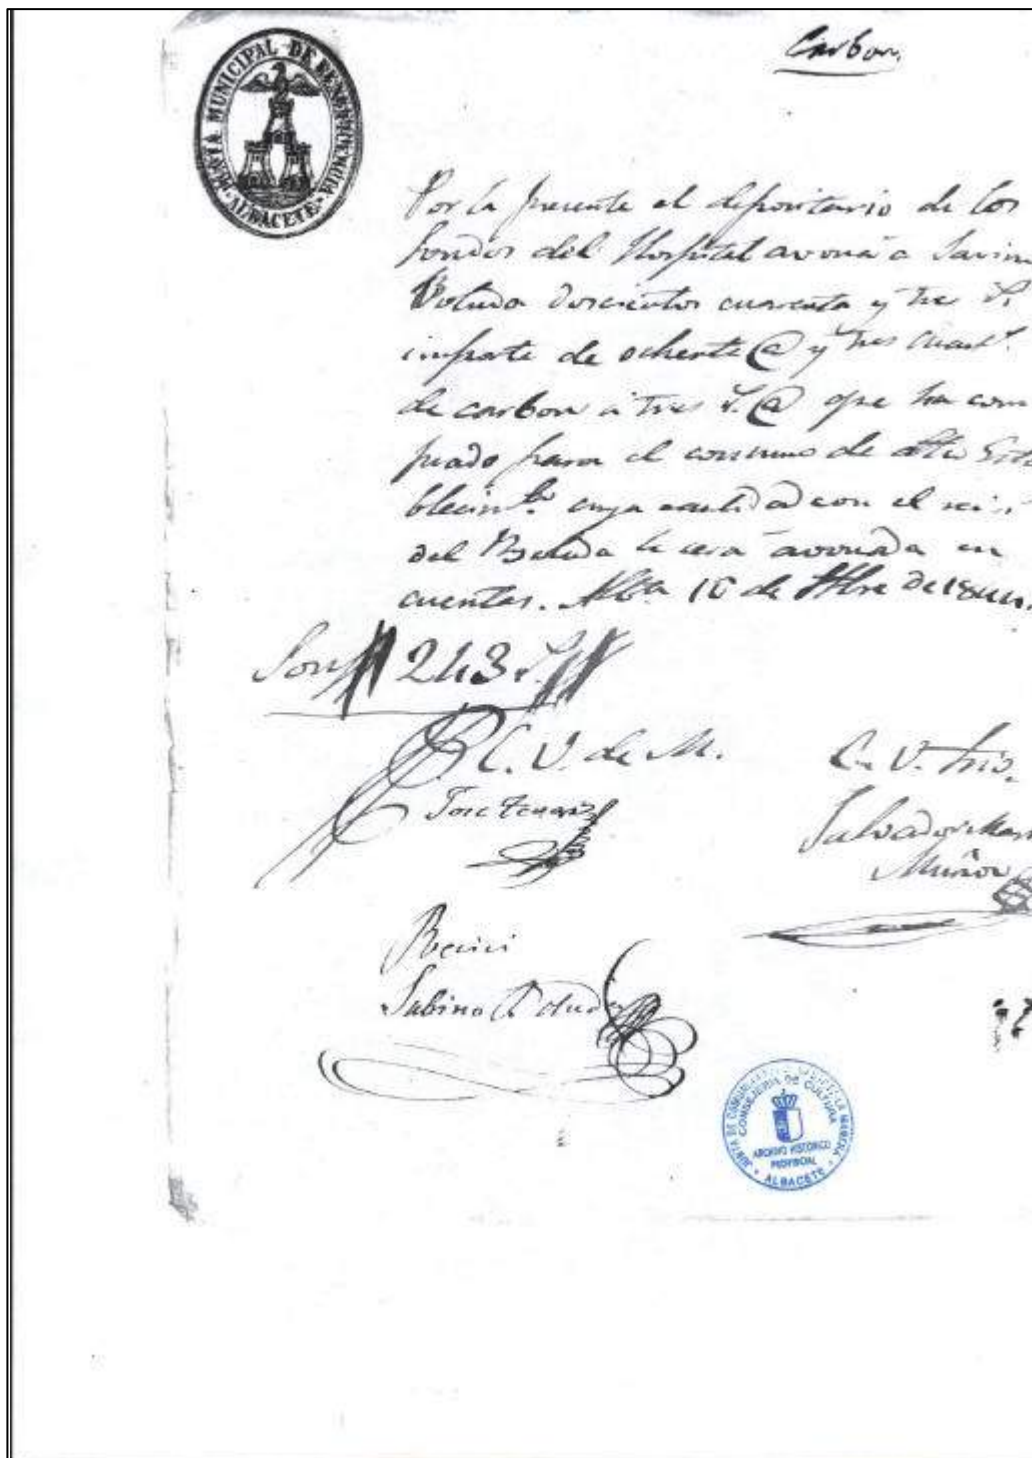 Carbon
JUNTA MUNICIPAL DE BENEFICENCIA
ALBACETE
Por la presente el depositario de los
fondos del Hospital avonará a Savin
doscientos cuarenta y tres r.
importe de ochenta @ y tres cuart.
de carbon á tres r. @ que ha com
prado para el consumo de
blecim.to cuya cantidad con el
del le será avonada en
cuentas. Alb.te de
Son 243 r.
C. V. de M.
Jose
C. V.
Salvador
Muñoz
Recivi
Sabino
JUNTA DE COMUNIDADES DE CASTILLA-LA MANCHA
CONSEJERIA DE CULTURA
ARCHIVO HISTORICO
PROVINCIAL
ALBACETE